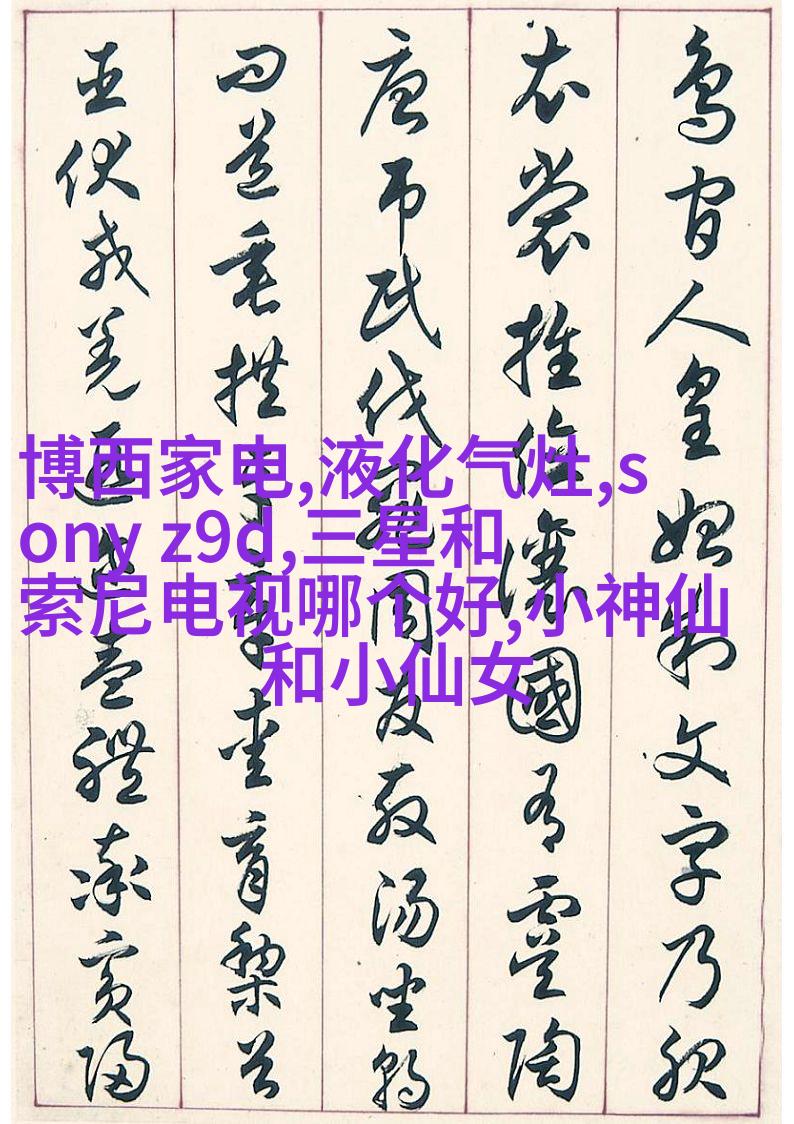 鳥官人皇始制文字乃服
衣裳推位讓國有虞陶
唐吊民伐罪周發殷湯坐朝
問道垂拱平章愛育黎首
臣伏戎羌遐邇壹體率賓歸
博西家电,液化气灶,s
ony z9d,三星和
索尼电视哪个好,小神仙
和小仙女